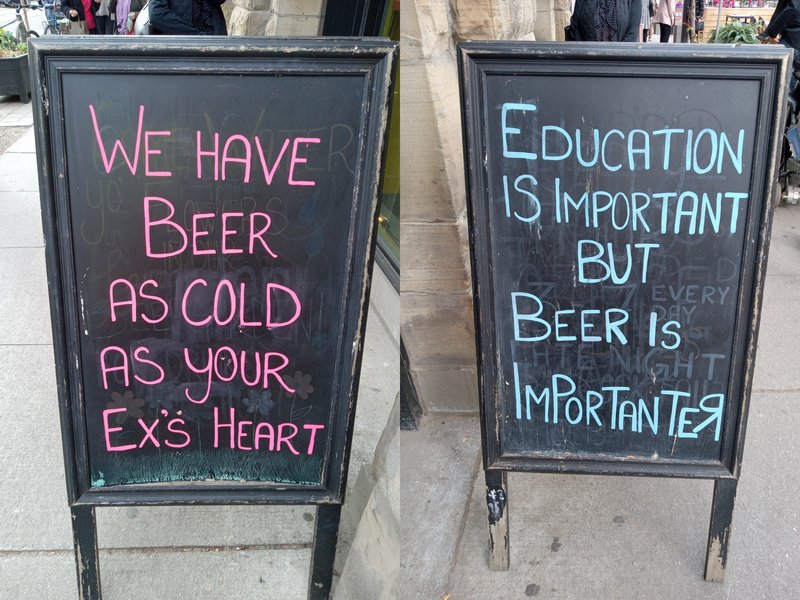 WE HAVE
BEER
AS COLD
AS YOUR
EX'S HEART
EDUCATION
IS IMPORTANT
BUT
BEER IS
IMPORTANTER
EVERY
DAY
NIGHT